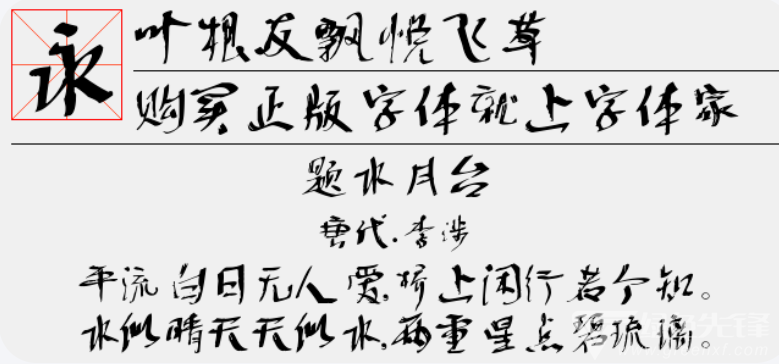 永
叶根友飘悦飞草
购买正版字体就上字体家
题水月台
唐代.李涉
平流白日无人爱,桥上闲行若个知。
水似晴天天似水,两重星点碧琉璃。